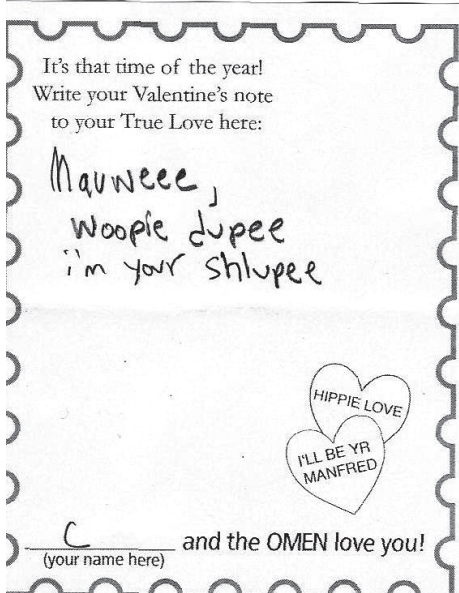 It's that time of the year!
Write your Valentine's note
to your True Love here:
Mauweee,
Woopie dupee
i'm your shlupee
HIPPIE LOVE
I'LL BE YR
MANFRED
C and the OMEN love you!
(your name here)